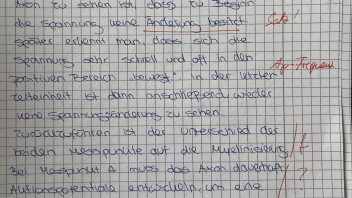 Axon zu sehen ist, dass zu Beginn
die Spannung keine Änderung besitzt. Satz!
Später erkennt man, dass sich die
Spannung sehr schnell und oft in den Ap-Frequenz
positiven Bereich "bewegt". In der letzten
Zeiteinheit ist dann anschließend wieder
keine Spannungsänderung zu sehen.
Zurückzuführen ist der Unterschied der
beiden Messpunkte auf die Myelinisierung. /f
Bei Messpunkt A muss das Axon dauerhaft
Aktionspotentiale entwickeln, um eine /?